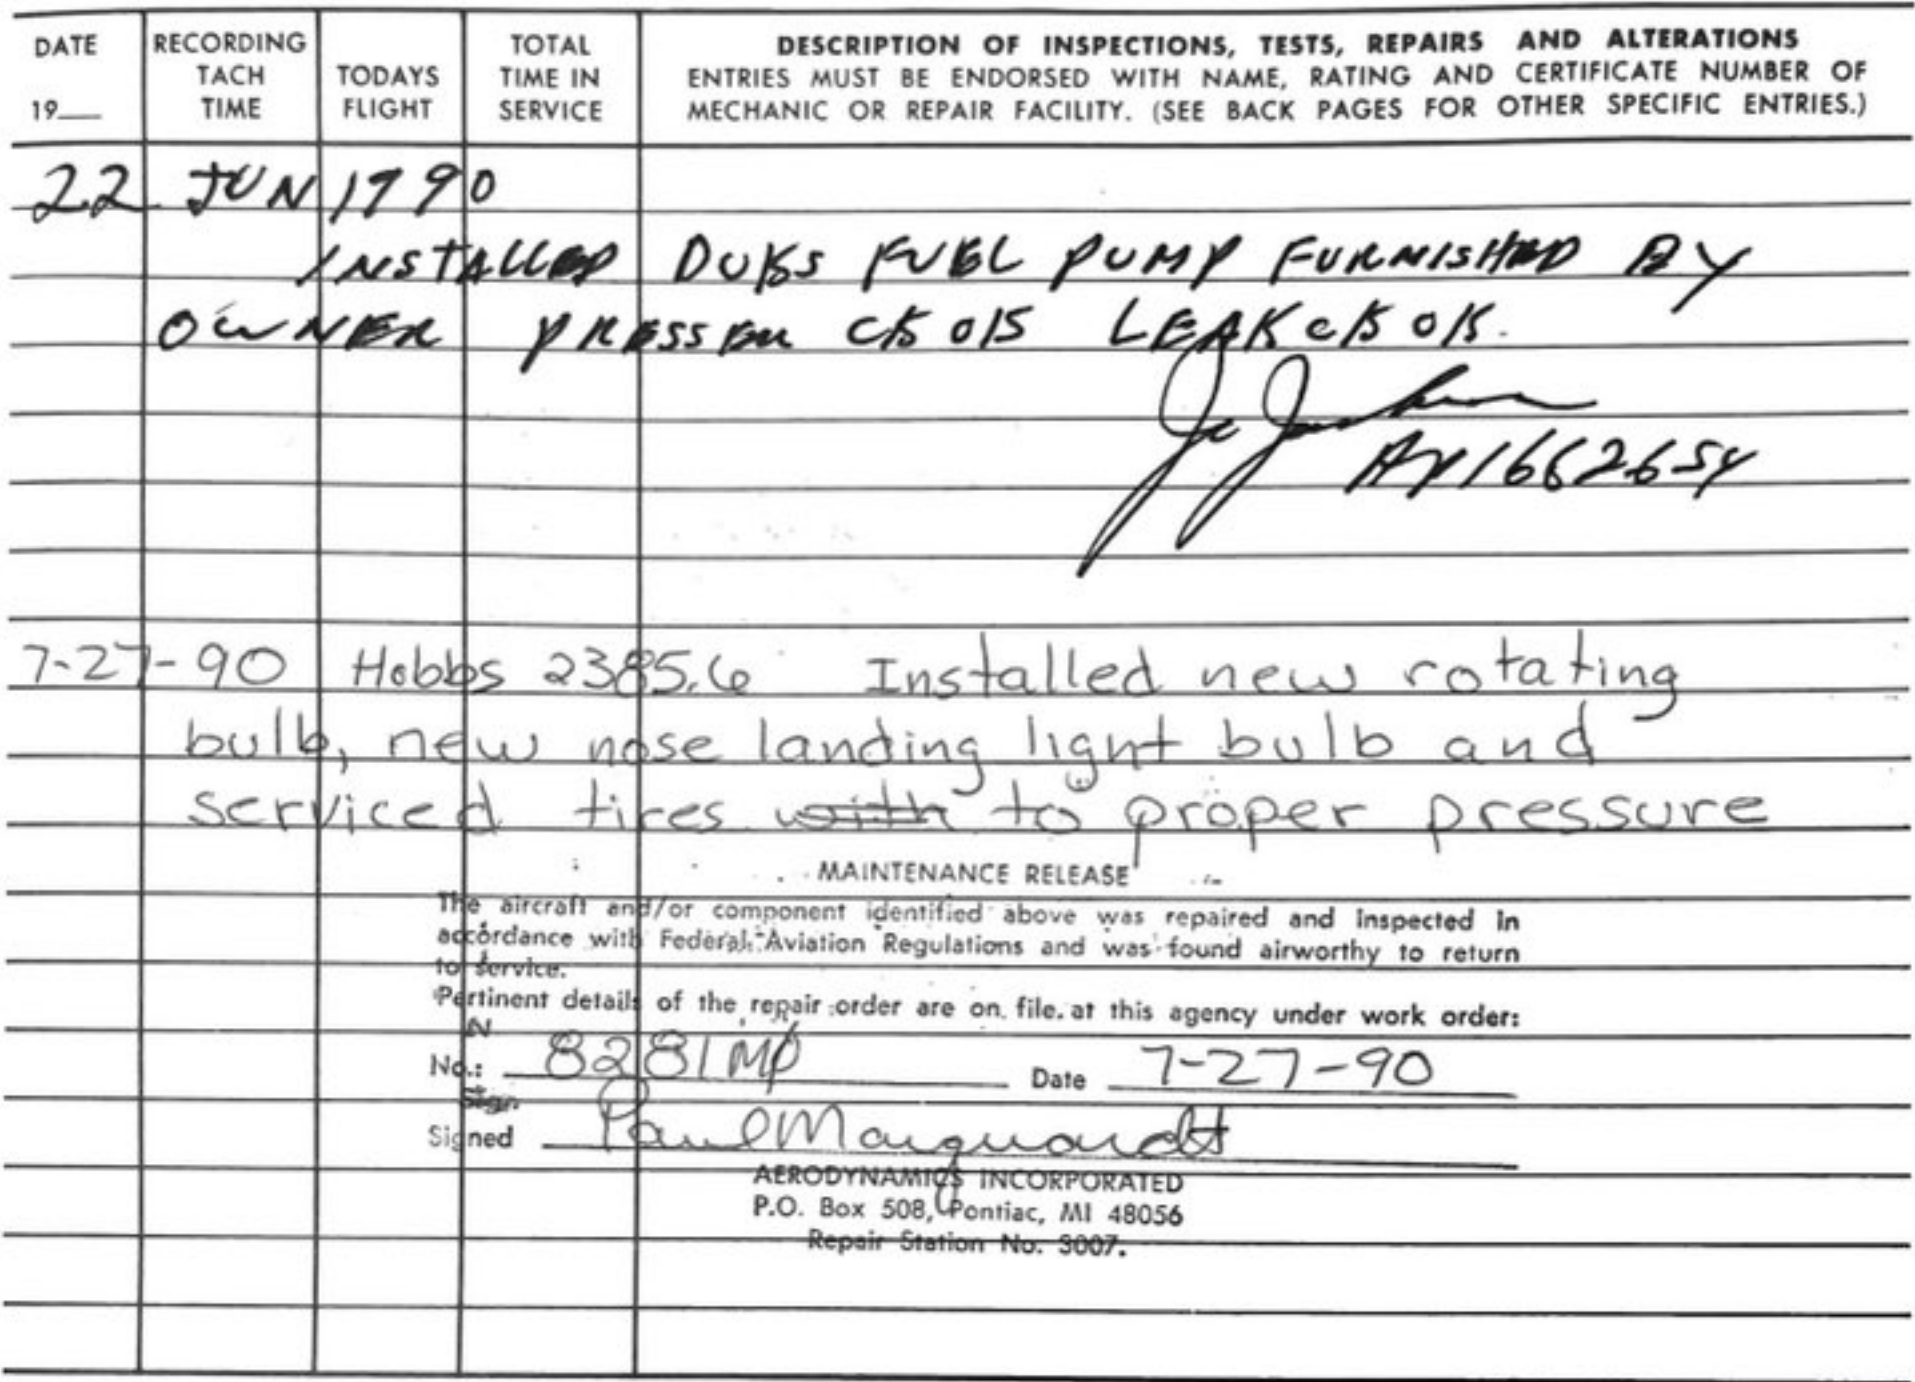 DATE RECORDING TACH TIME TODAYS FLIGHT TOTAL TIME IN SERVICE DESCRIPTION OF INSPECTIONS, TESTS, REPAIRS AND ALTERATIONS
19__ ENTRIES MUST BE ENDORSED WITH NAME, RATING AND CERTIFICATE NUMBER OF
MECHANIC OR REPAIR FACILITY. (SEE BACK PAGES FOR OTHER SPECIFIC ENTRIES.)
22 JUN 1990
INSTALLED DUKS FUEL PUMP FURNISHED BY
OWNER PRESSER CK OK LEAK CK OK.
AP1662654
7-27-90 Hobbs 2385.6 Installed new rotating
bulb, new nose landing light bulb and
serviced tires with to proper pressure
MAINTENANCE RELEASE
The aircraft and/or component identified above was repaired and inspected in
accordance with Federal Aviation Regulations and was found airworthy to return
to service.
Pertinent details of the repair order are on file at this agency under work order:
N
No.: 8281MP Date 7-27-90
Sign
Signed Paul Marquardt
AERODYNAMICS INCORPORATED
P.O. Box 508, Pontiac, MI 48056
Repair Station No. 3007.